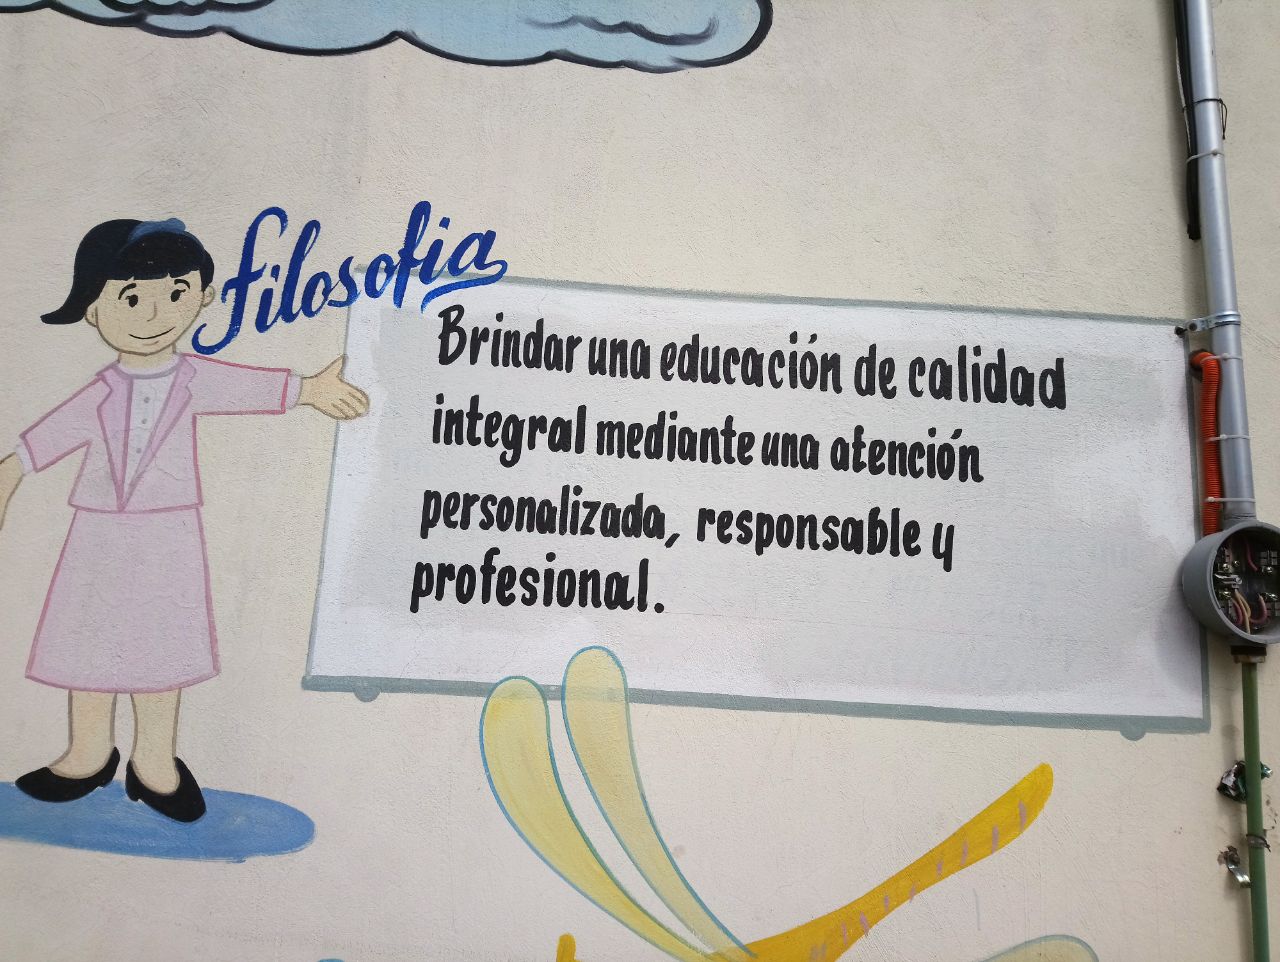 filosofia
Brindar una educación de calidad
integral mediante una atención
personalizada, responsable y
profesional.